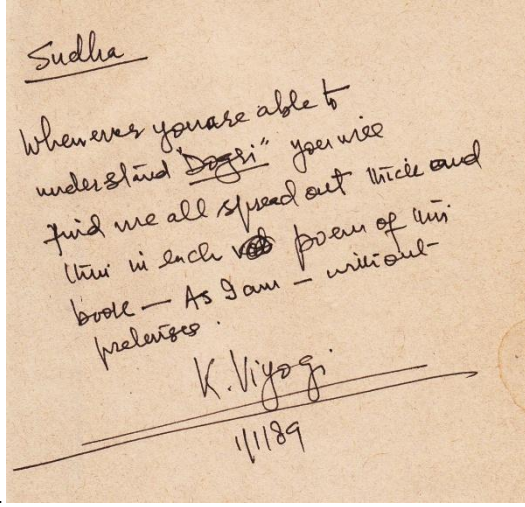 Sudha
Whenever you are able to
understand "Dogri" you will
find me all spread out thick and
thin in each poem of this
book — As I am — without
pretenses.
K. Viyogi
1/1/89